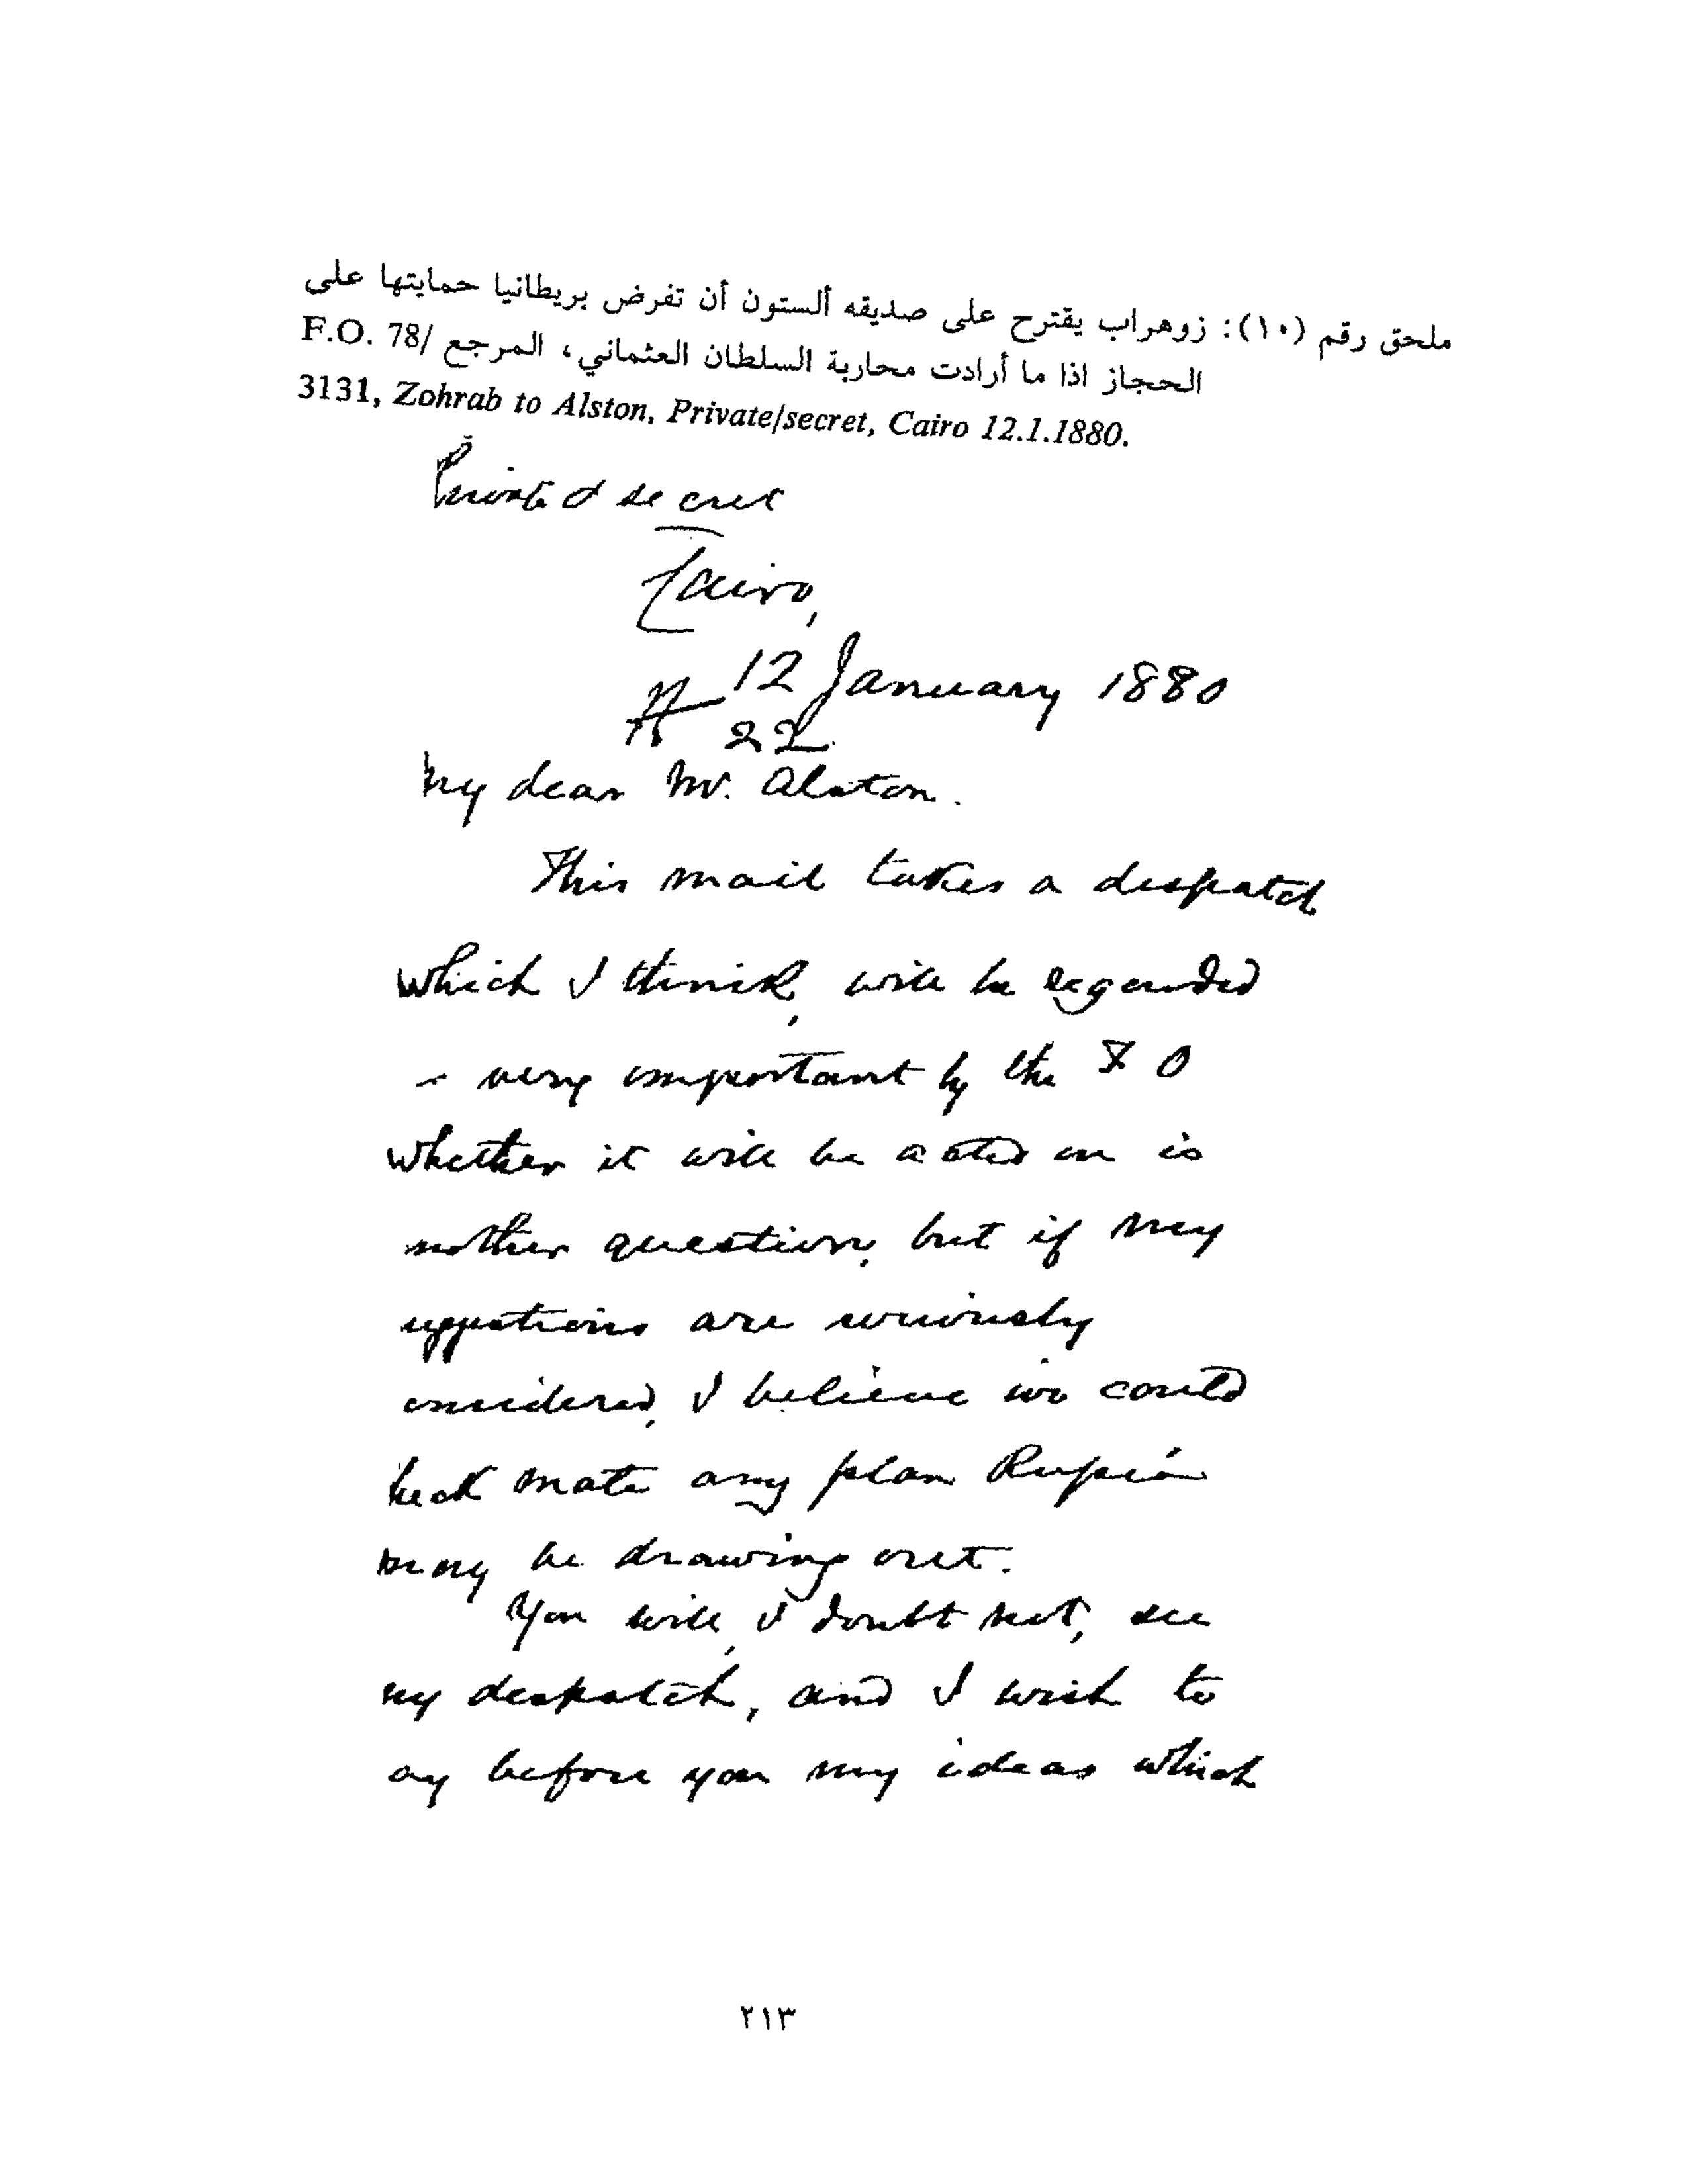 ملحق رقم (١٠): زوهراب يقترح على صديقه ألستون أن تفرض بريطانيا حمايتها على
الحجاز اذا ما أرادت محاربة السلطان العثماني، المرجع F.O. 78/
3131, Zohrab to Alston, Private/secret, Cairo 12.1.1880.
Private & secret
Cairo,
12 January 1880
22
My dear Mr. Alston.
This mail takes a despatch
which I think, will be regarded
very important by the F O
whether it will be acted on is
nother question, but if my
uggestions are seriously
onsidered, I believe we could
heck mate any plan Russia
may be drawing out.
You will, I doubt not, see
my despatch, and I wish to
ay before you my ideas which
٢١٣